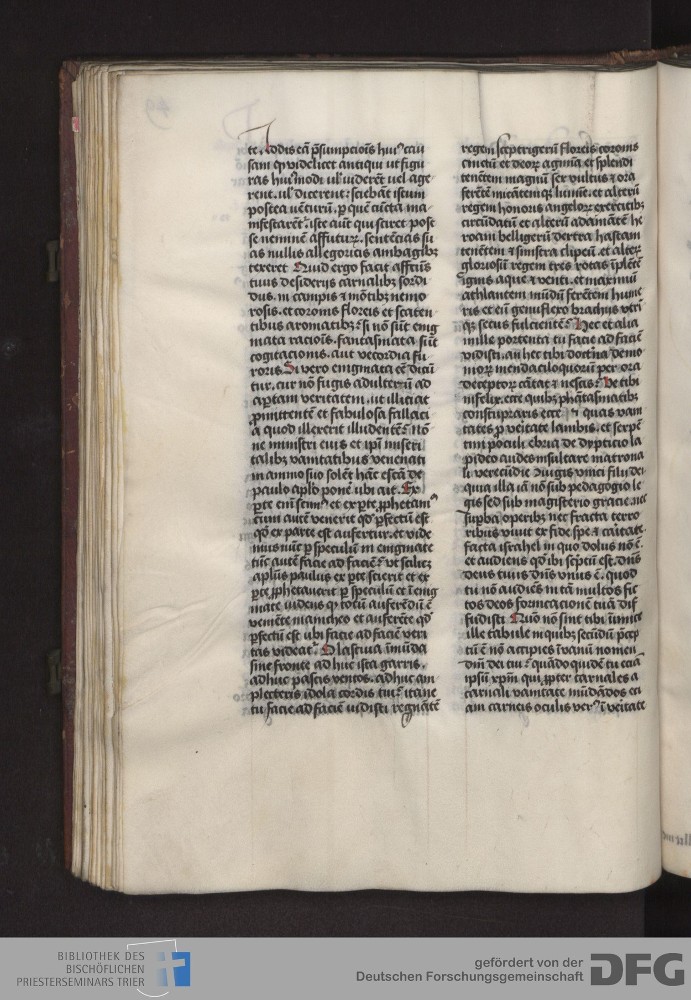 te. Addis eā p̄sumpcōis huiꝰ cau
sam qꝫ videlicet antiqui ut figu
ras huiꝰmodi ul' viderēt vel age
rent. ul' dicerent: sciebāt istum
postea uēturū. ꝑ quē cūcta ma-
nifestarēt. iste aūt qui sciret post
se neminē affuturꝝ. sentēcias su
as nullis allegoricis ambagibꝫ
tereret Quid ergo facit affrūs
tuus desiderijs carnalibꝫ sordi
dus. in campis ⁊ mōtibꝫ nemo
rosis. et coronis floreis et scaten
tibus aromatibꝫ? si nō sūt enig
mata racōis. fantasmata sūt
cogitacionis. aut vecordia fu
roris. Si vero enigmata eē dicūt
tur. cur nō fugis adulteriū ad
aꝑtam veritatem. ut illiciat
ꝓmittentē et fabulosa fallaci
a quod illexerit illudentē? Nō
ne ministri eius et ip̄i miseri
talibꝫ vanitatibus venenati
in ammo suo solēt hāc escā de
paulo ap̄lo ponē ubi ait. Ex
ꝑte em̄ scimꝰ et ex ꝑte ꝓphetamꝰ
cum autē venerit qd̄ ꝑfectū est
qd̄ ex parte est aufertur. et vide
mus nūc ꝑ speculū in enigmate
tūc autē facie ad faciē? vt scilicꝫ
ap̄lus paulus ex ꝑte scierit et ex
ꝑte ꝓphetauerit ꝑ speculū et ī enig
mate uidens qꝫ totū auferēdū ē
veniēte manicheo et auferēte qd̄
ꝑfectū est ubi facie ad faciē veri
tas videat. O lasciua īmūda
sine fronte ad huc ista garris.
adhuc pascis ventos. adhuc am
plecteris idola cordis tui? itane
tu facie ad faciē uidisti regnātē
regem sceptrigerū floreis coronis
cinctū et deoꝝ agmīa et splendi
tenētem magnū sex vultus ⁊ ora
ferētē micātemqꝫ lumīe. et alterū
regem honoris angeloꝝ exercitibꝫ
circūdatū et alterū adamātē he
roam belligerū dextra hastam
tenētem ⁊ sinistra clipeū. et alteꝝ
gloriosū regem tres rotas īpletē
ignis aque ⁊ venti. et maximū
athlantem mūdū ferētem hume
ris et eū genuflexo brachijs vtri
qꝫ secus fulcientē? Hec et alia
mille portenta tu facie ad faciē
vidisti. an hec tibi doct'na demo
nioꝝ mendaciloquorū per ora
deceptoꝝ cātāt ⁊ nescis? Ve tibi
infelix. ecce quibꝫ phātasmatibꝫ
constupraris ecce ⁊ quas vani
tates ꝓ veitate lambis. et serpē
tini poculi ebria de dypticio la
pideo audes insultare matrona
li verecūdie ⁊iugis vnici filii dei
quia illa iā nō sub pedagogio le
gis sed sub magisterio gracie. nec
suꝑba operibꝫ nec fracta terro
ribus viuit ex fide spe ⁊ caitate.
facta israhel in quo dolus nō ē.
et audiens qd̄ ibi sc̄ptū est. dn̄s
deus tuus dn̄s vnus ē. quod
tu nō audiēs in tā multos fic
tos deos fornicacionē tuā dif
fudisti. Quō nō sint tibi īimice
ille tabule in quibꝫ secūdū p̄cep
tū ē nō accipies ī vanū nomen
dn̄i dei tui? quādo quidē tu etiā
ipsū xp̄m qui ꝓpter carnales a
carnali vanitate mūdādos eti
am carneis oculis verꝰ ī veitate
BIBLIOTHEK DES
BISCHÖFLICHEN
PRIESTERSEMINARS TRIER
gefördert von der
Deutschen Forschungsgemeinschaft
DFG